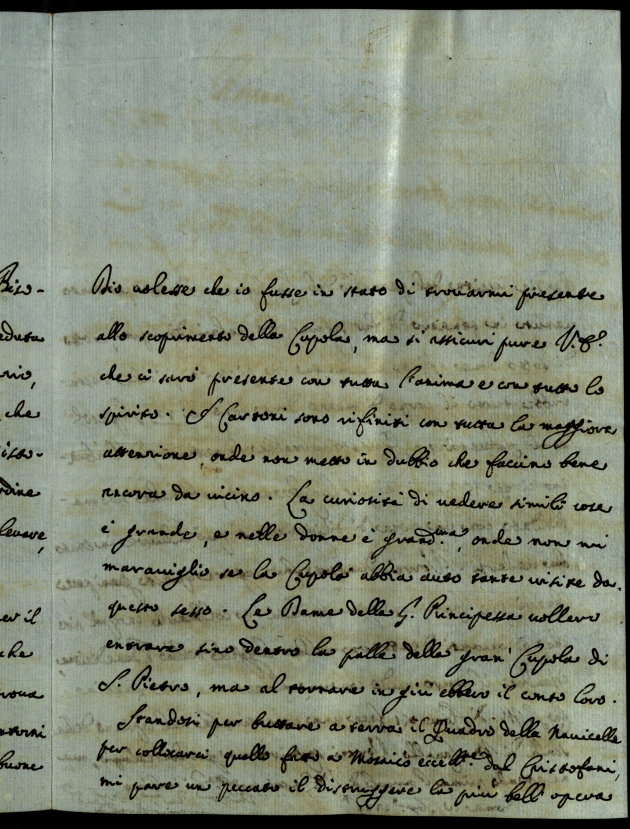 Dio volesse che io fusse in stato di trovarmi presente
allo scoprimento della Cupola, ma si assicuri pure V.S.
che ci sarò presente con tutta l'anima e con tutto lo
spirito. I Cartoni sono rifiniti con tutta la maggiore
attenzione, onde non metto in dubbio che faccino bene
ancora da vicino. La curiosità di vedere simili cose
è grande, e nelle donne è grand.ma, onde non mi
maraviglio se la Cupola abbia auto tante visite da
questo sesso. Le Dame della G. Principessa vollero
entrare sino dentro la palle della gran Cupola di
S. Pietro, ma al tornare in giù ebbero il conto loro.
Standosi per buttare a terra il Quadro della Navicella
per collocarci quello fatto a Mosaico eccell.te dal Cristofani,
mi pare un peccato il distruggere la più bell'opera
che
levare,
per il
che
buone